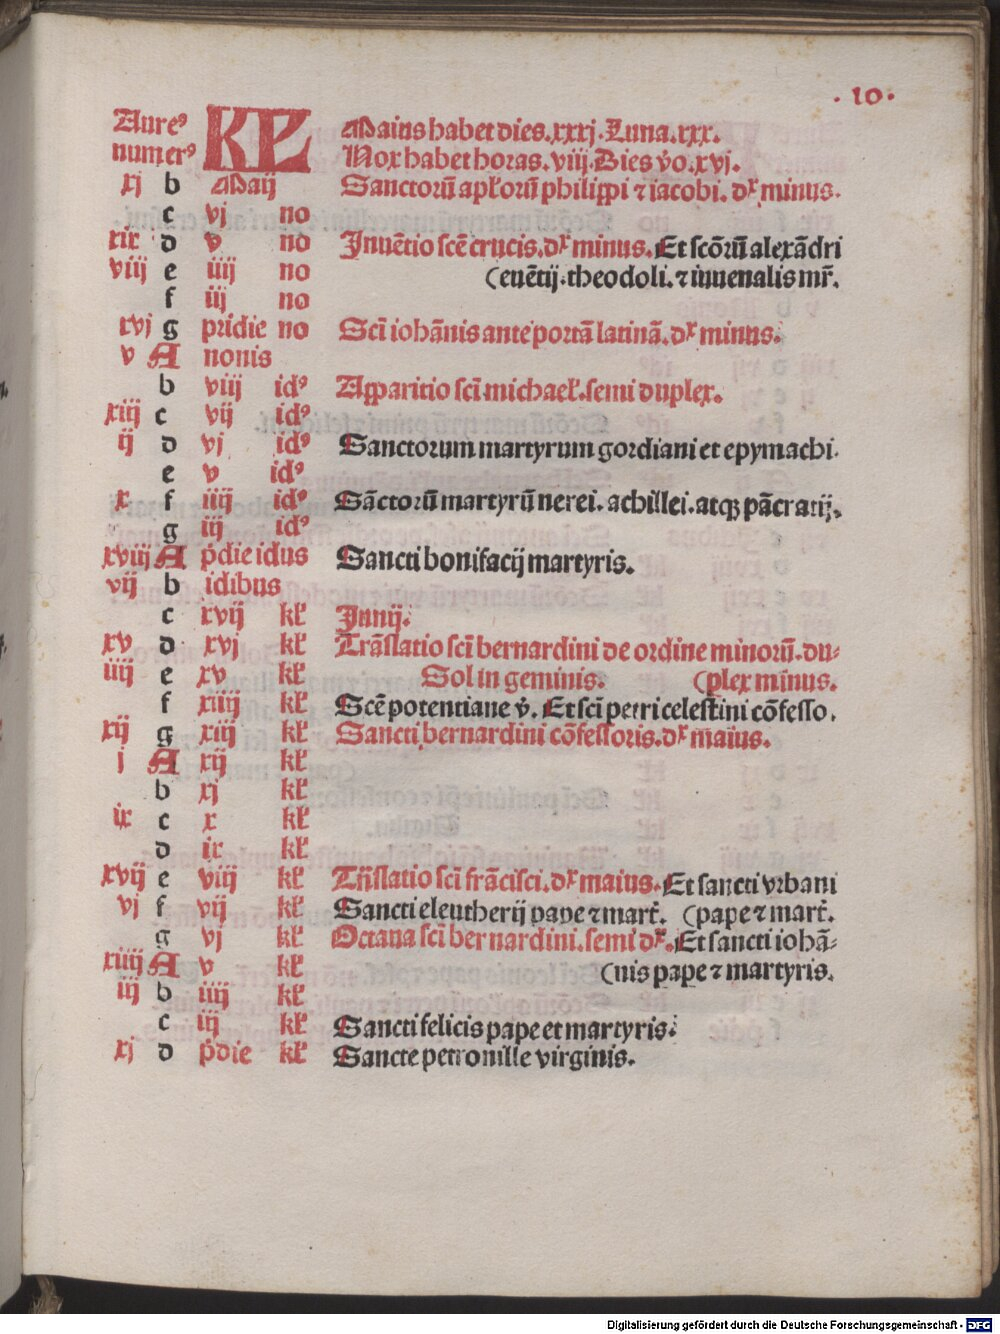 · 10 ·
Aureꝰ KL Maius habet dies. xxxj. Luna. xxx.
numerꝰ Nox habet horas. viij. Dies v̊o. xvj.
xj b Maij Sanctorū apłorū philippi ⁊ iacobi. dr̃ minus.
c vj no
xix d v no Inuētio scē crucis. dr̃ minus. Et scōrū alexādri
viij e iiij no (euētij. theodoli. ⁊ iuuenalis mr̄.
f iij no
xvj g pridie no Scī iohānis ante portā latinā. dr̃ minus.
v A nonis
b viij idꝰ Apparitio scī michaeł. semi duplex.
xiij c vij idꝰ
ij d vj idꝰ Sanctorum martyrum gordiani et epymachi.
e v idꝰ
x f iiij idꝰ Sāctorū martyrū nerei. achillei. atqꝫ pācratij.
g iij idꝰ
xviij A p̄die idus Sancti bonifacij martyris.
vij b idibus
c xvij kł Junij.
xv d xvj kł Trāslatio scī bernardini de ordine minorū. du-
iiij e xv kł Sol in geminis. (plex minus.
f xiiij kł Scē potentiane v̄. Et scī petri celestini cōfesso.
xij g xiij kł Sancti bernardini cōfessoris. dr̃ maius.
j A xij kł
b xj kł
ix c x kł
d ix kł
xvij e viij kł Trāslatio scī frācisci. dr̃ maius. Et sancti vrbani
vj f vij kł Sancti eleutherij pape ⁊ mart̄. (pape ⁊ mart̄.
g vj kł Octaua scī bernardini. semi dr̃. Et sancti iohā-
xiiij A v kł (nis pape ⁊ martyris.
iij b iiij kł
c iij kł Sancti felicis pape et martyris.
xj d p̄die kł Sancte petronille virginis.
Digitalisierung gefördert durch die Deutsche Forschungsgemeinschaft - DFG